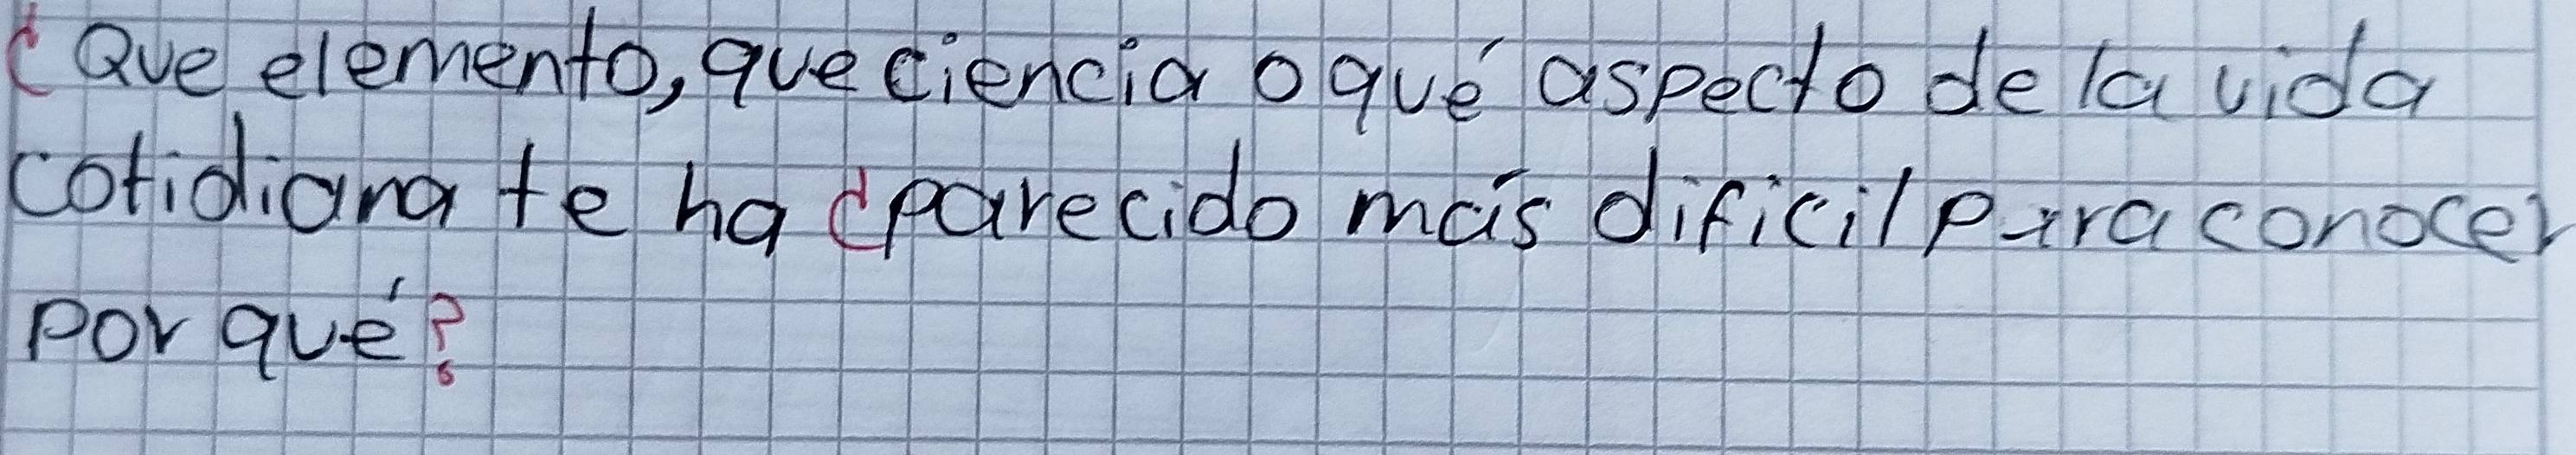 ¿Que elemento, que ciencia o qué aspecto de la vida
cotidiana te ha ¿parecido más dificil para conocer
por qué?